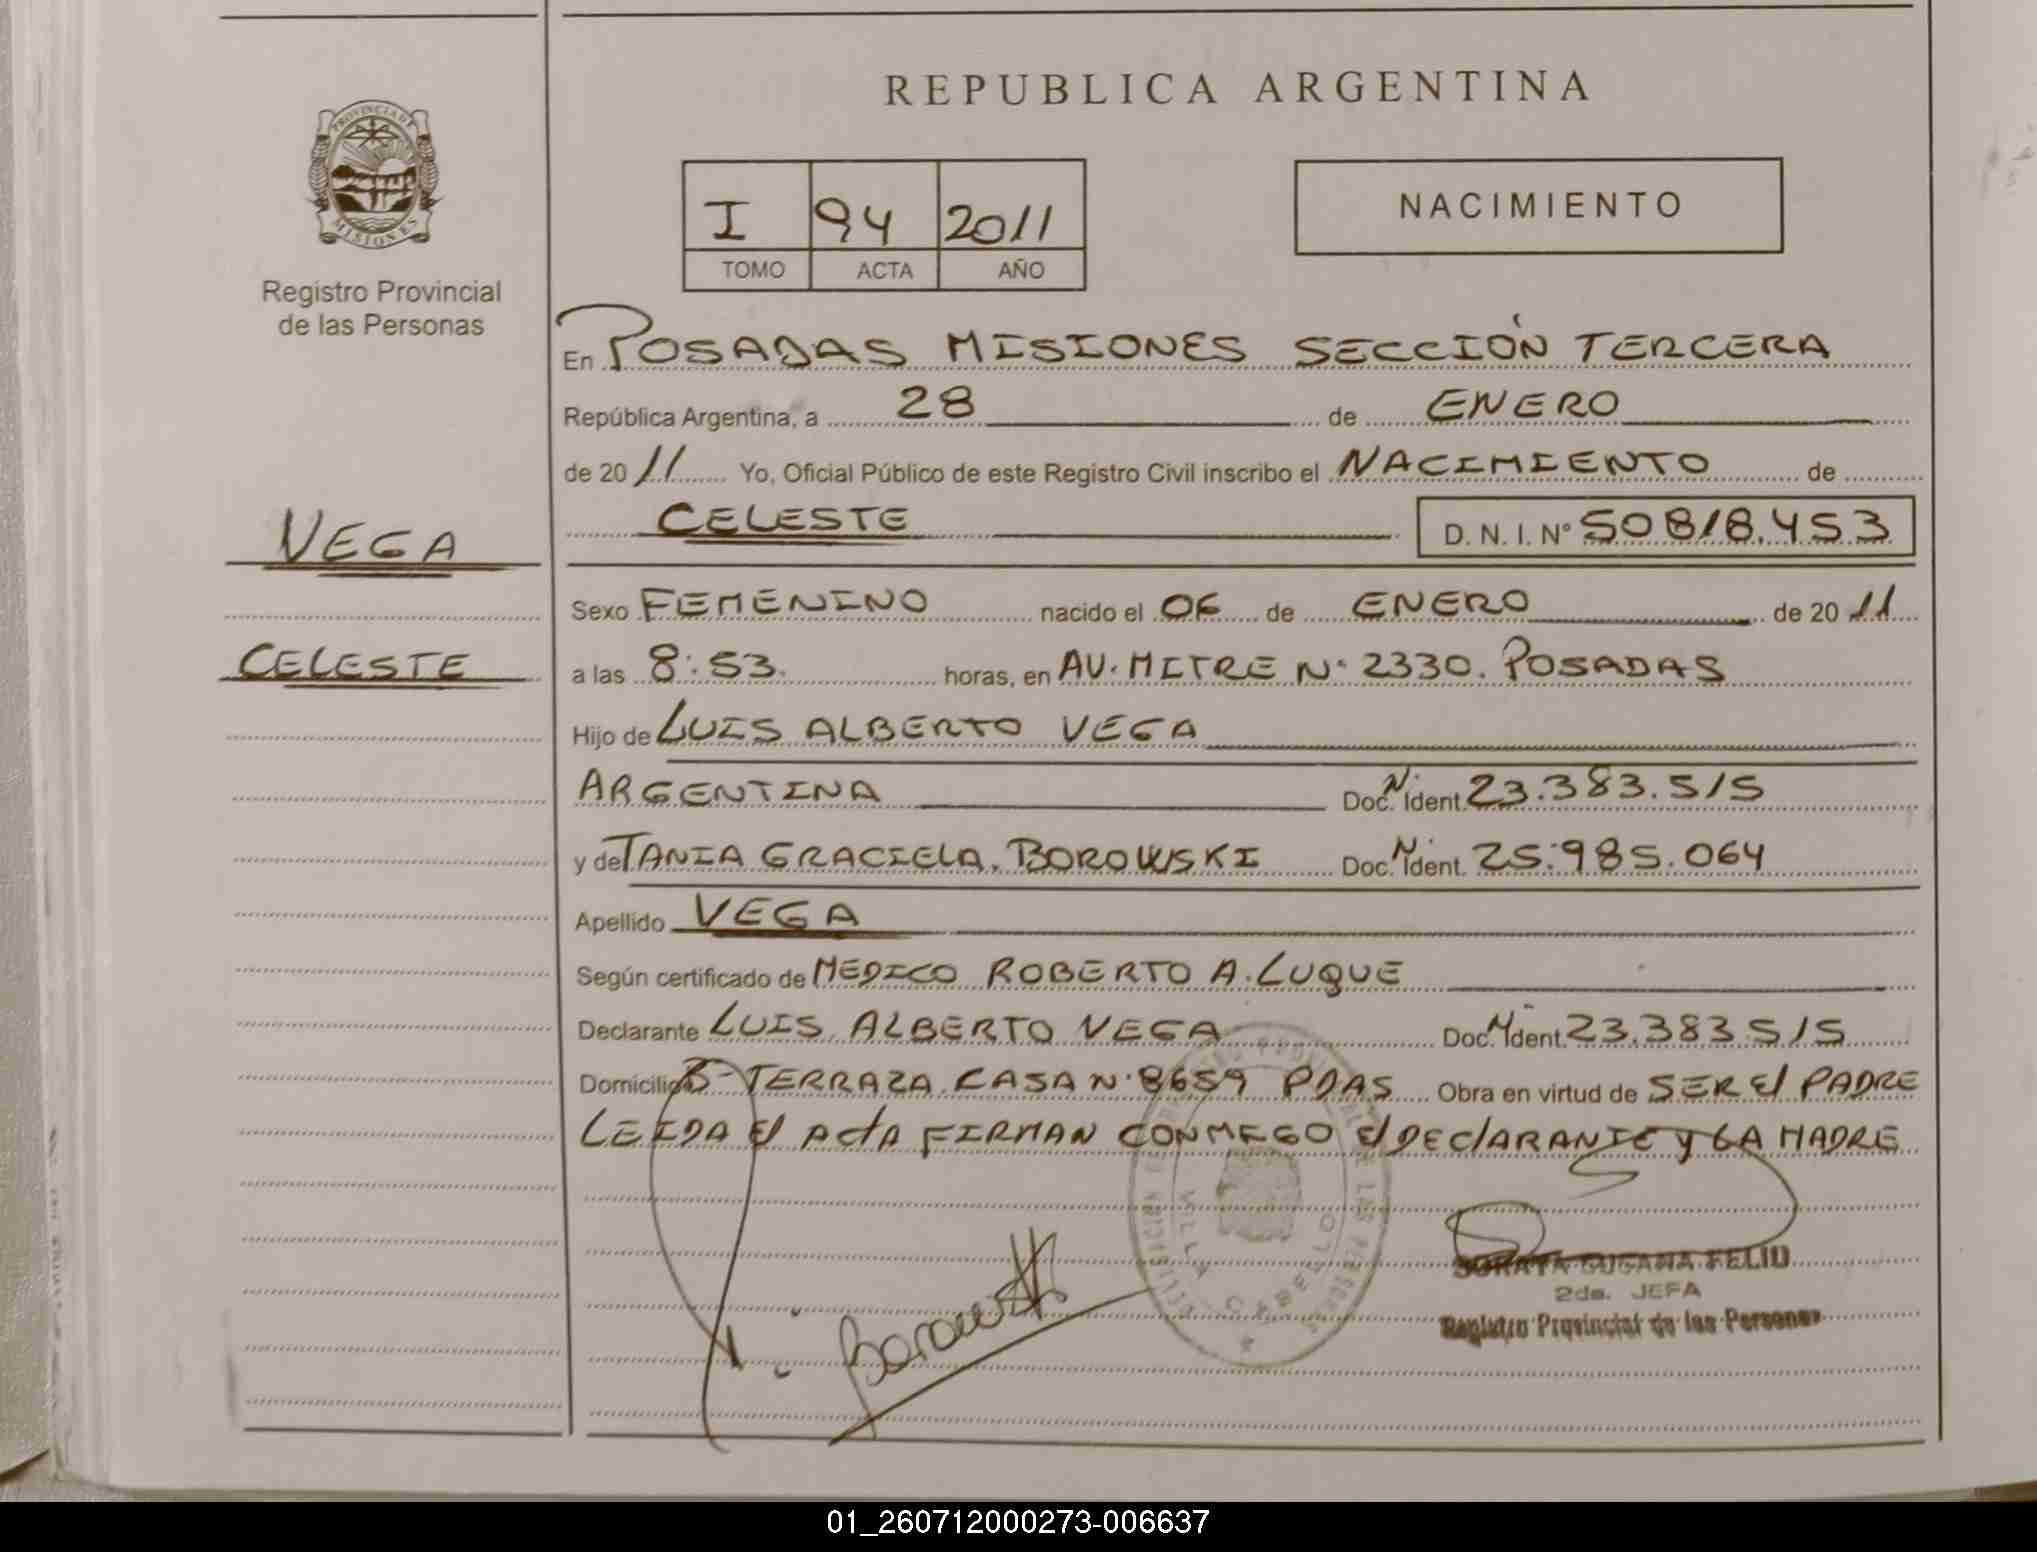 REPUBLICA ARGENTINA
PROVINCIA DE
MISIONES
Registro Provincial
de las Personas
I 94 2011
TOMO ACTA AÑO
NACIMIENTO
En POSADAS MISIONES SECCIÓN TERCERA
República Argentina, a 28 de ENERO
de 2011 Yo, Oficial Público de este Registro Civil inscribo el NACIMIENTO de
CELESTE D. N. I. Nº 50818.453
VEGA
CELESTE
Sexo FEMENINO nacido el 06 de ENERO de 2011
a las 8:53. horas, en AV. MITRE Nº 2330. POSADAS
Hijo de LUIS ALBERTO VEGA
ARGENTINA Doc. N. Ident. 23.383.515
y de TANIA GRACIELA. BOROWSKI Doc. N. Ident. 25.985.064
Apellido VEGA
Según certificado de MEDICO ROBERTO A. LUQUE
Declarante LUIS ALBERTO VEGA Doc. N. Ident. 23.383515
Domicilio Bº TERRAZA. CASA Nº 8659 PDAS Obra en virtud de SER El PADRE
LEIDA El ActA FIRMAN CONMIGO El DEClARANTE y LA MADRE
Borowski
SORAYA SUSANA FELIU
2da. JEFA
Registro Provincial de las Personas
01_260712000273-006637